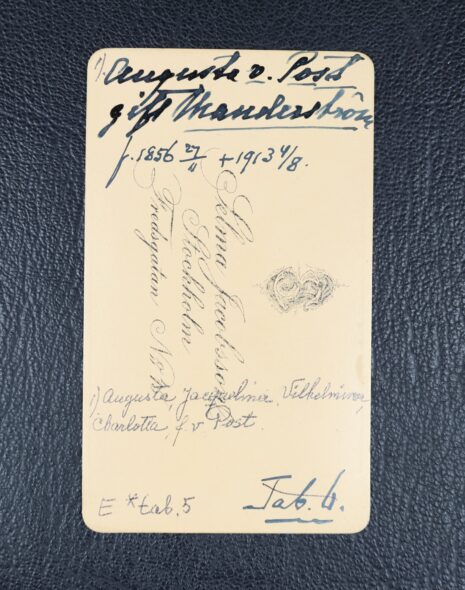 1). Augusta v. Post
gift Manderström
f. 1856 27/11 + 1913 4/8.
Selma Jacobsson
Stockholm
Fredsgatan No
1) Augusta, Jacquelina, Vilhelmina,
Charlotta, f. v. Post.
E * tab. 5
Tab. 6.